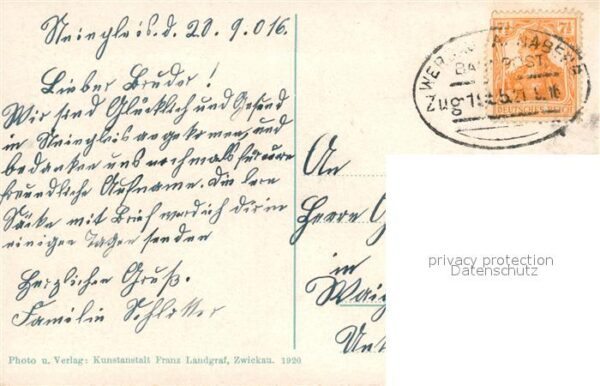 Steinpleis.d. 20. 9.016.
Lieber Bruder!
Wir sind Glücklich und Gesund
in Steinpleis angekommen, und
bedanken uns nochmals für eure
freundliche Aufname. die leere
Säcke mit Brief werd ich dir in
einigen Tagen senden
Herzlichen Gruß.
Familie Schlotter
Photo u. Verlag: Kunstanstalt Franz Landgraf, Zwickau. 1920
BAHNPOST
Zug
7½
DEUTSCHES REICH
An
Herrn G
in
Unt
privacy protection
Datenschutz